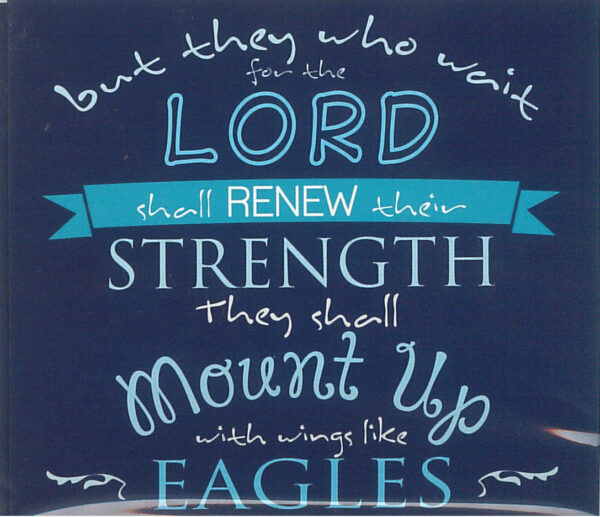 but they who wait
for the
LORD
shall RENEW their
STRENGTH
They shall
Mount Up
with wings like
EAGLES